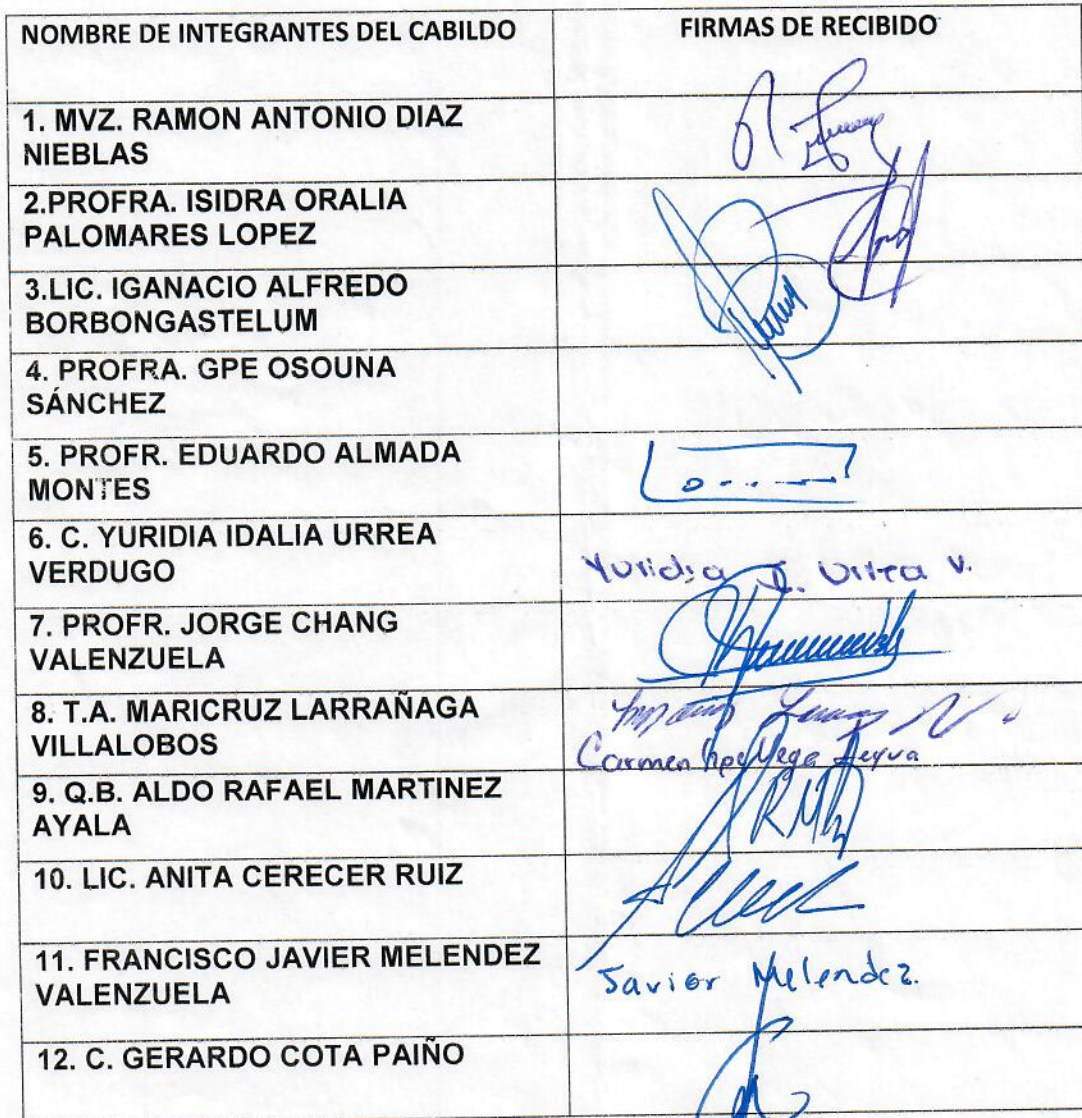 NOMBRE DE INTEGRANTES DEL CABILDO
FIRMAS DE RECIBIDO
1. MVZ. RAMON ANTONIO DIAZ
NIEBLAS
2.PROFRA. ISIDRA ORALIA
PALOMARES LOPEZ
3.LIC. IGANACIO ALFREDO
BORBONGASTELUM
4. PROFRA. GPE OSOUNA
SÁNCHEZ
5. PROFR. EDUARDO ALMADA
MONTES
6. C. YURIDIA IDALIA URREA
VERDUGO
Yuridia I. Urrea V.
7. PROFR. JORGE CHANG
VALENZUELA
8. T.A. MARICRUZ LARRAÑAGA
VILLALOBOS
Carmen Vega Leyva
9. Q.B. ALDO RAFAEL MARTINEZ
AYALA
10. LIC. ANITA CERECER RUIZ
11. FRANCISCO JAVIER MELENDEZ
VALENZUELA
Javier Melendez.
12. C. GERARDO COTA PAIÑO